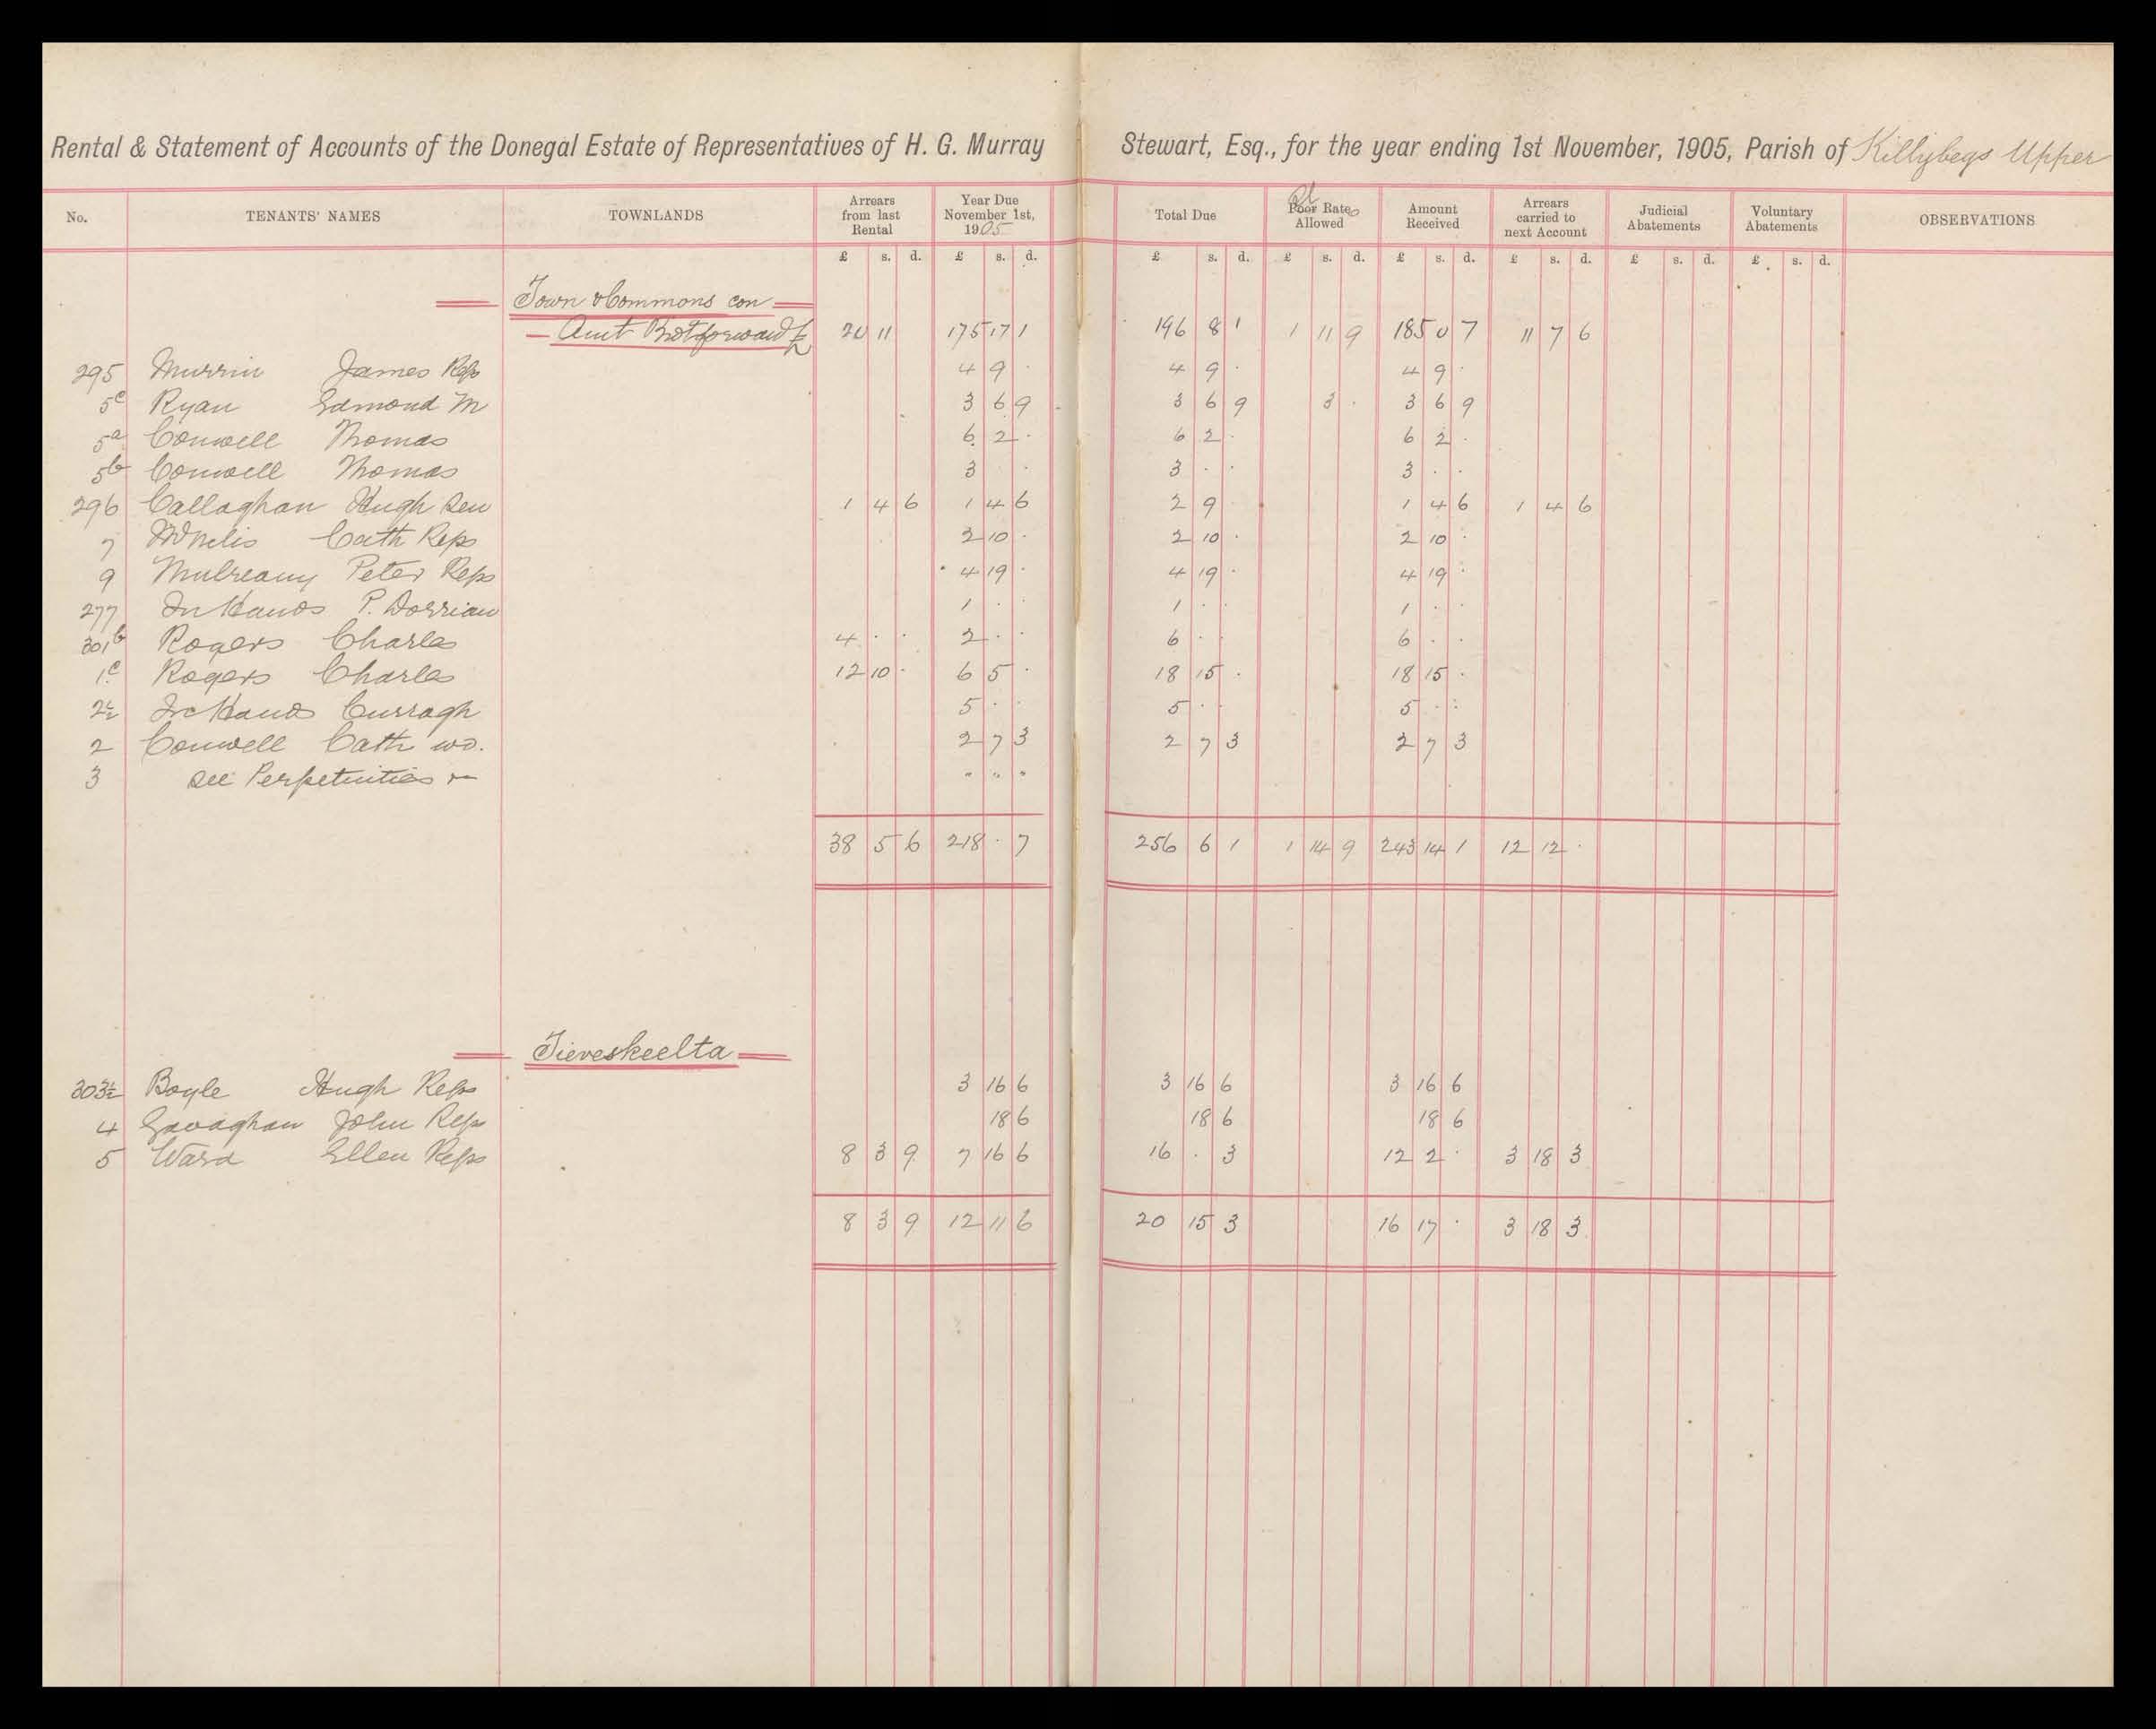 Rental & Statement of Accounts of the Donegal Estate of Representatives of H. G. Murray Stewart, Esq., for the year ending 1st November, 1905, Parish of Killybegs Upper
No. TENANTS' NAMES TOWNLANDS Arrears from last Rental Year Due November 1st, 1905 Total Due Poor Rates Allowed Amount Received Arrears carried to next Account Judicial Abatements Voluntary Abatements OBSERVATIONS
£ s. d. £ s. d. £ s. d. £ s. d. £ s. d. £ s. d. £ s. d. £ s. d.
Town & Commons con
Amt Brot forward 20 11 175 17 1 196 8 1 1 11 9 185 0 7 11 7 6
295 Murrin James Reps 4 9 · 4 9 · 4 9 ·
5c Ryan Edmond M 3 6 9 3 6 9 3 · 3 6 9
5a Conwell Thomas 6 2 · 6 2 · 6 2 ·
5b Conwell Thomas 3 · 3 · · 3 · ·
296 Callaghan Hugh Sen 1 4 6 1 4 6 2 9 1 4 6 1 4 6
7 Cath Reps 2 10 · 2 10 · 2 10 ·
9 Mulreany Peter Reps 4 19 · 4 19 · 4 19 ·
277 In Hands P. Dorrian 1 · · 1 · · 1 · ·
301b Rogers Charles 4 · · 2 · · 6 · · 6 · ·
1c Rogers Charles 12 10 · 6 5 · 18 15 · 18 15 ·
2½ In Hands Curragh 5 · · 5 · · 5 · ·
2 Conwell Cath wd. 2 7 3 2 7 3 2 7 3
3 See Perpetuities " " "
38 5 6 218 · 7 256 6 1 1 14 9 243 14 1 12 12 ·
Tieveskeelta
303½ Boyle Hugh Reps 3 16 6 3 16 6 3 16 6
4 Gavaghan John Reps 18 6 18 6 18 6
5 Ward Ellen Reps 8 3 9 7 16 6 16 · 3 12 2 · 3 18 3
8 3 9 12 11 6 20 15 3 16 17 · 3 18 3